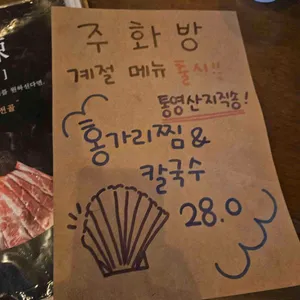 주화방
계절 메뉴 출시!!
통영산지직송!
홍가리찜 &
칼국수
28.0